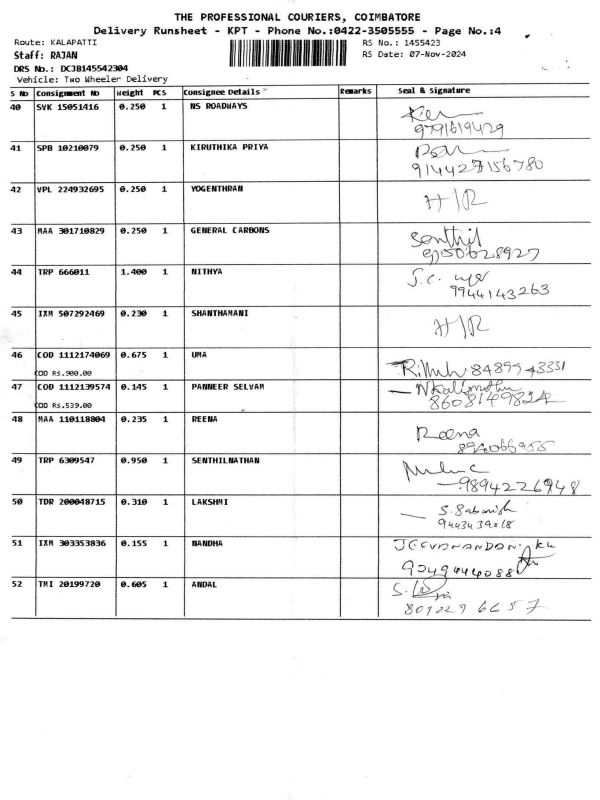 THE PROFESSIONAL COURIERS, COIMBATORE
Delivery Runsheet - KPT - Phone No.:0422-3505555 - Page No.:4
Route: KALAPATTI
RS No.: 1455423
Staff: RAJAN
RS Date: 07-Nov-2024
DRS No.: DCJB145542304
Vehicle: Two Wheeler Delivery
S No Consignment No Weight PCS Consignee Details Remarks Seal & Signature
40 SVK 15051416 0.250 1 NS ROADWAYS
9791619429
41 SPB 10210079 0.250 1 KIRUTHIKA PRIYA
914427156780
42 VPL 224932695 0.250 1 YOGENTHRAN H/R
43 MAA 301710829 0.250 1 GENERAL CARBONS Senthil
9150628927
44 TRP 666011 1.400 1 NITHYA
9944143263
45 IXM 507292469 0.230 1 SHANTHAMANI H/R
46 COD 1112174069 0.675 1 UMA 8489943331
COD Rs.900.00
47 COD 1112139574 0.145 1 PANNEER SELVAM
COD Rs.539.00
48 MAA 110118804 0.235 1 REENA Reena
49 TRP 6309547 0.950 1 SENTHILNATHAN
9894226948
50 TDR 200048715 0.310 1 LAKSHMI S. Sabarish
51 IXM 303353836 0.155 1 NANDHA
9249444088
52 TMI 20199720 0.605 1 ANDAL
801229 6657